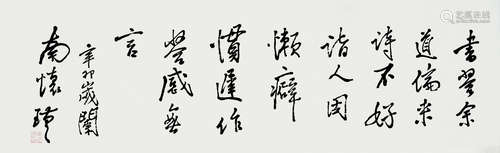 書習余
道偏
詩不好
諧人因
懶癖
慣遲作
答感無
言
辛卯歲闌
南懷瑾